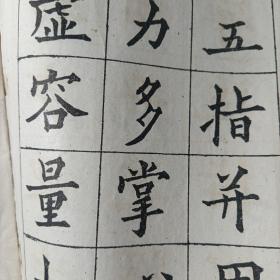 五指并
力多掌
虚容量